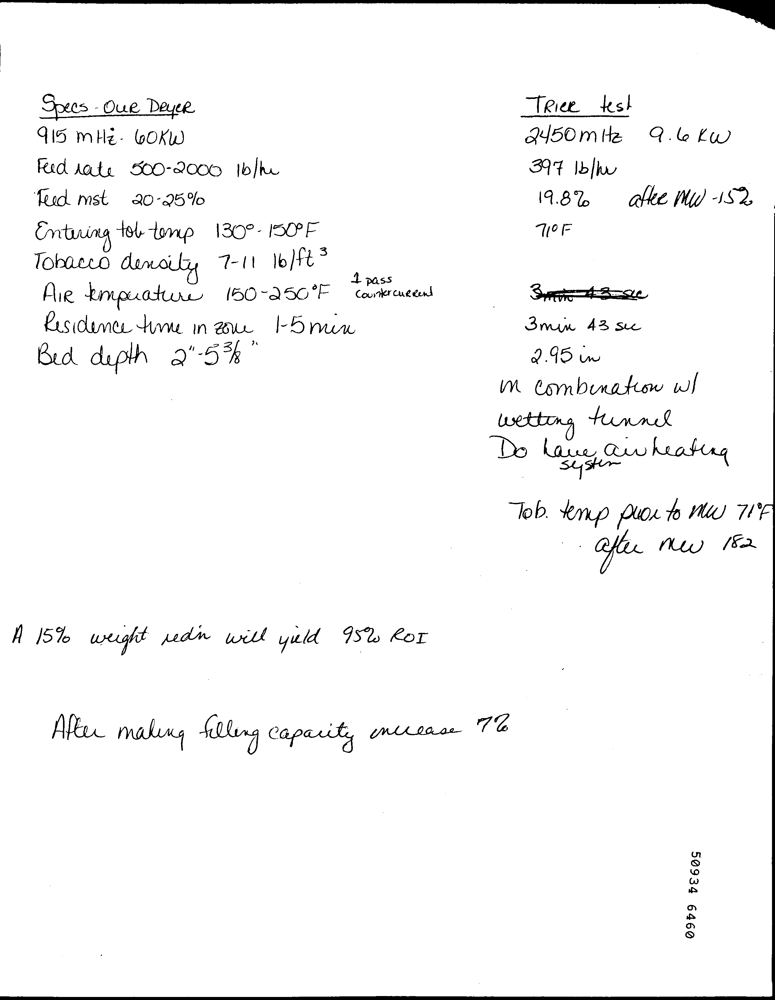 Specs - Our Dryer
915 mHz - 60KW
Feed rate 500-2000 lb/hr
Feed mst 20-25%
Entering tob temp 130° - 150°F
Tobacco density 7-11 lb/ft³
Air temperature 150-250°F 1 pass countercurrent
Residence time in zone 1-5 min
Bed depth 2"-5 3/8"
Trier test
2450 mHz 9.6 KW
397 lb/hr
19.8% after MW -15%
71°F
3min 43 sec
3min 43 sec
2.95 in
in combination w/
wetting tunnel
Do have air heating
system
Tob. temp prior to MW 71°F
after MW 182
A 15% weight red'n will yield 95% ROI
After making filling capacity increase 7%
50934 6460